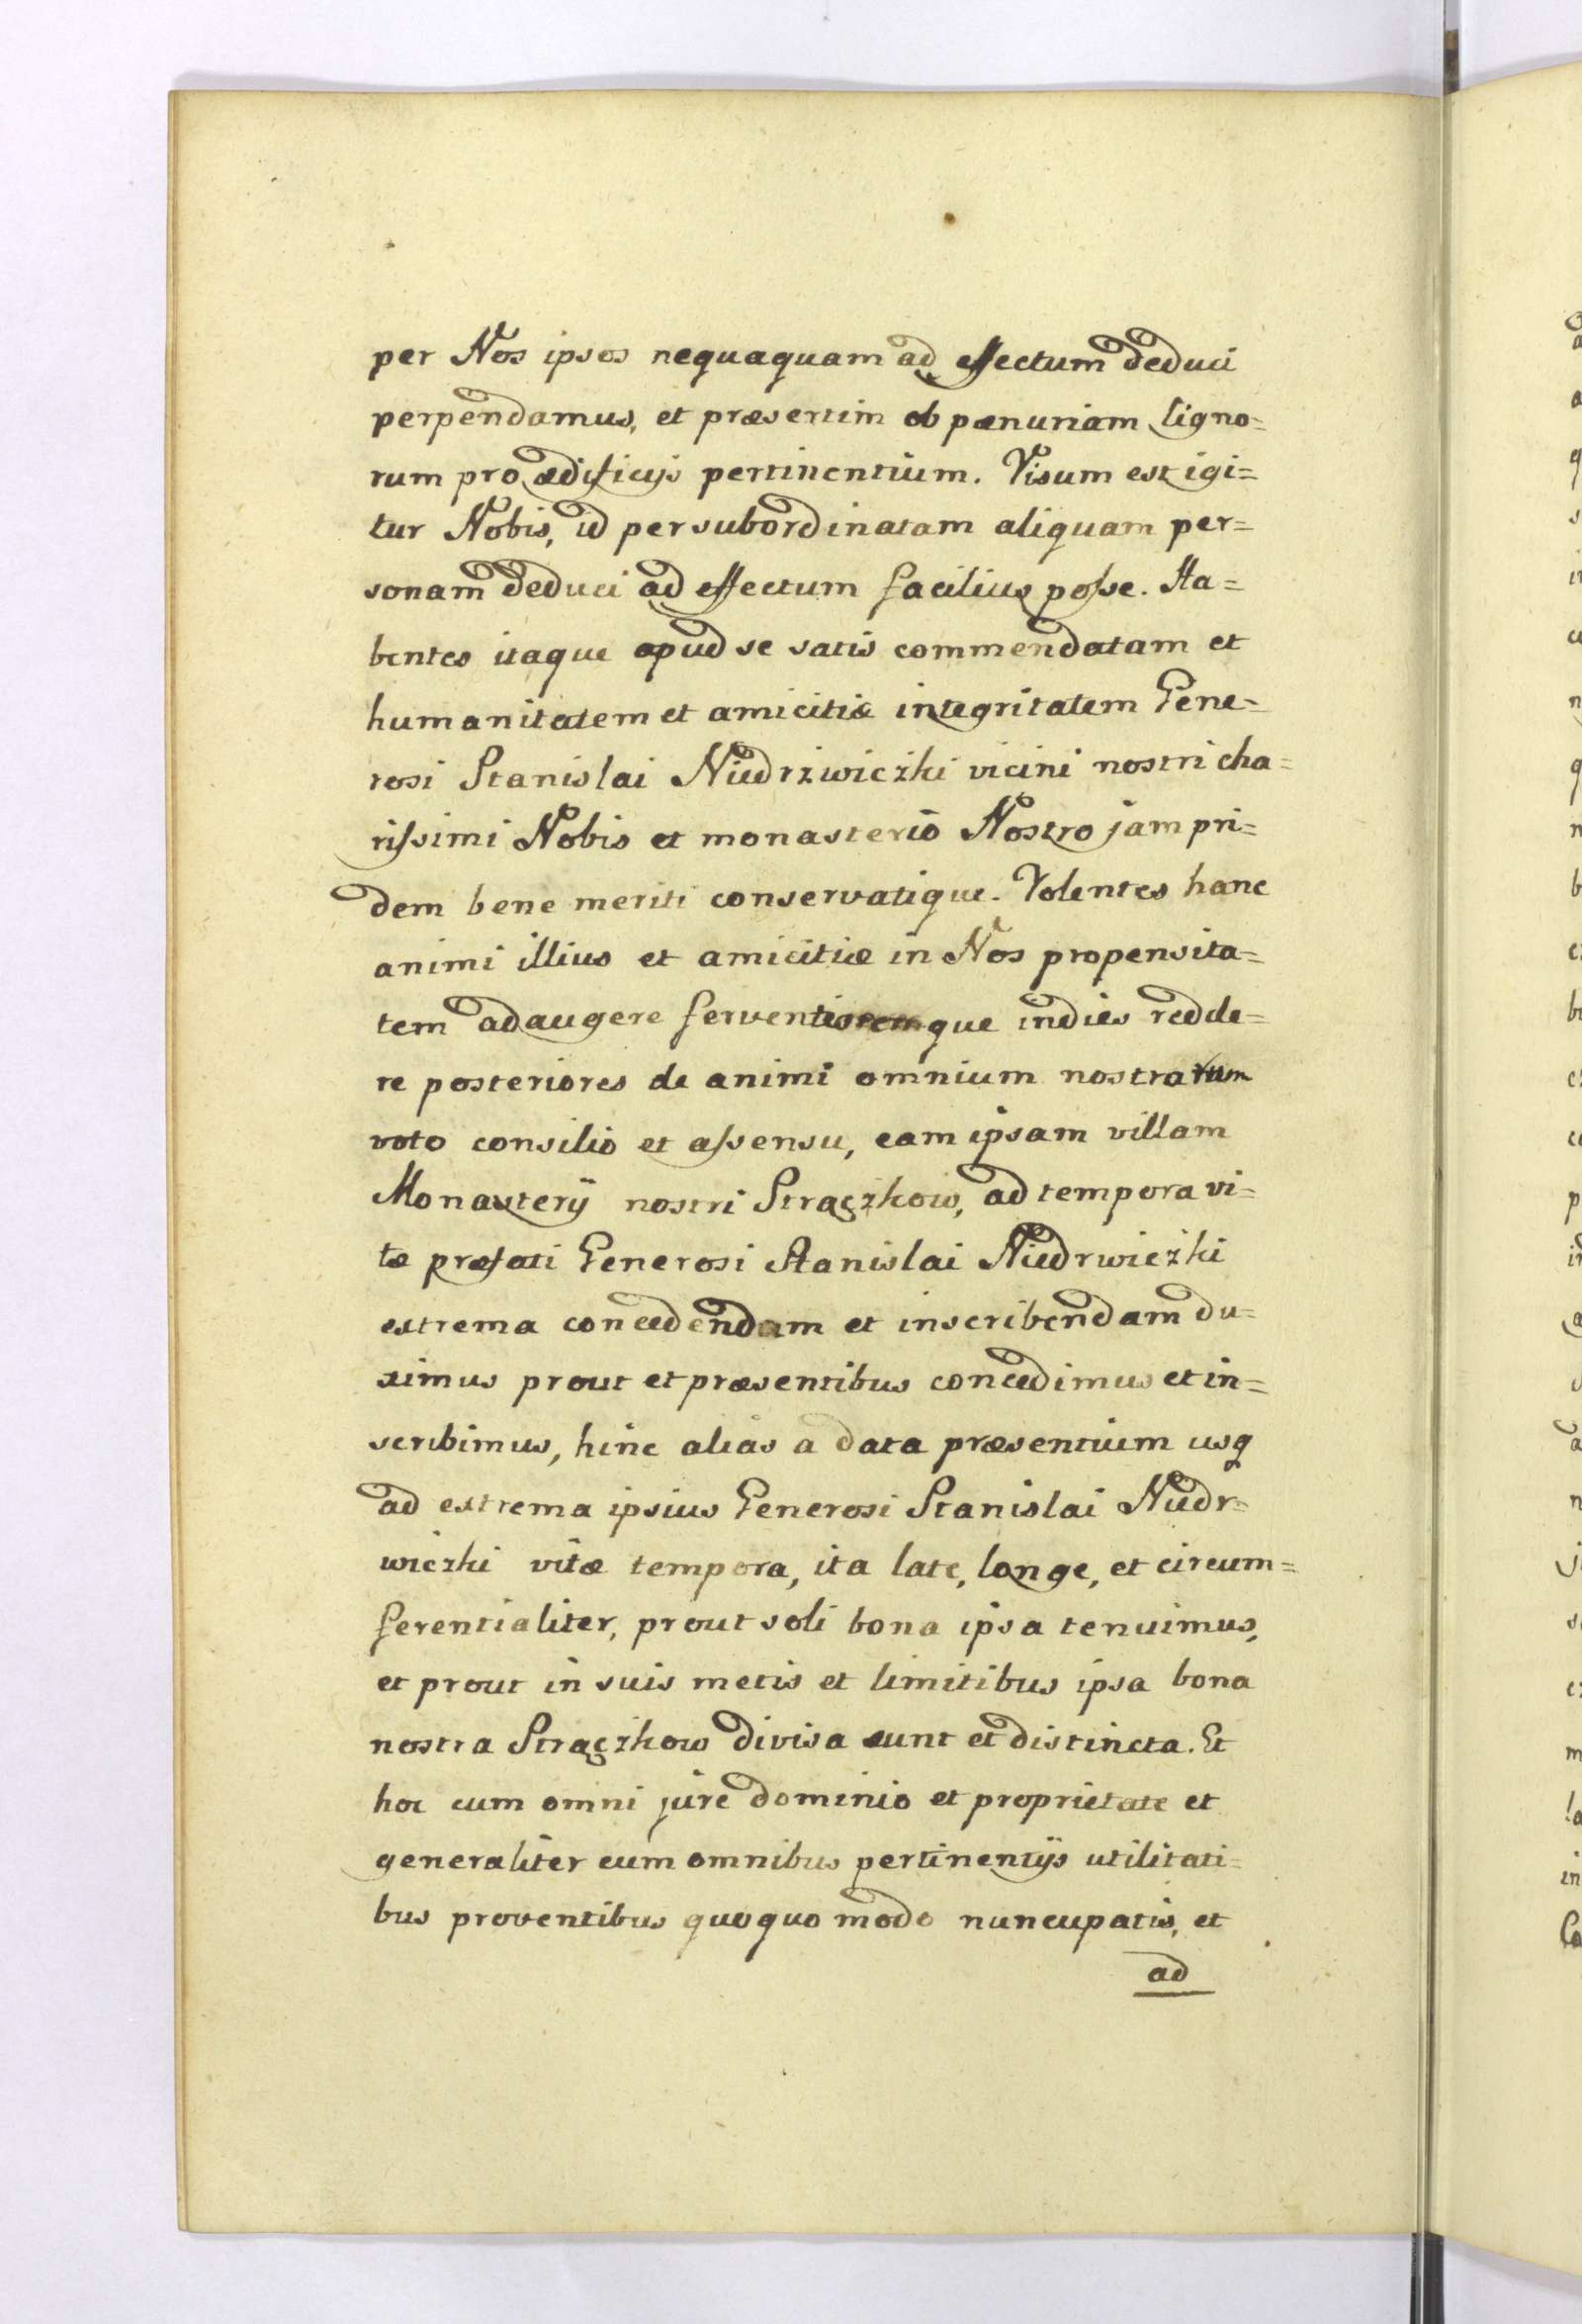 per Nos ipsos nequaquam ad effectum deduci
perpendamus, et præsertim ob pænuriam ligno=
rum pro ædificijs pertinentium. Visum est igi=
tur Nobis, id per subordinatam aliquam per=
sonam deduci ad effectum facilius posse. Ha=
bentes itaque apud se satis commendatam et
humanitatem et amicitiæ integritatem Gene=
rosi Stanislai Niedrzwiczki vicini nostri cha=
rissimi Nobis et monasterio Nostro jam pri=
dem bene meriti conservatique. Volentes hanc
animi illius et amicitiæ in Nos propensita=
tem adaugere ferventioremque indies redde=
re posteriores de animi omnium nostrarum
voto consilio et assensu, eam ipsam villam
Monasterij nostri Strączkow, ad tempora vi=
tæ præfati Generosi Stanislai Niedrwiczki
extrema concedendam et inscribendam du=
ximus prout et præsentibus concedimus et in=
scribimus, hinc alias a data præsentium usq
ad extrema ipsius Generosi Stanislai Niedr=
wiczki vitæ tempora, ita late, longe, et circum=
ferentialiter, prout soli bona ipsa tenuimus,
et prout in suis metis et limitibus ipsa bona
nostra Strączkow divisa sunt et distincta. Et
hoc cum omni jure dominio et proprietate et
generaliter cum omnibus pertinentijs utilitati=
bus proventibus quoquo modo nuncupatis, et
ad